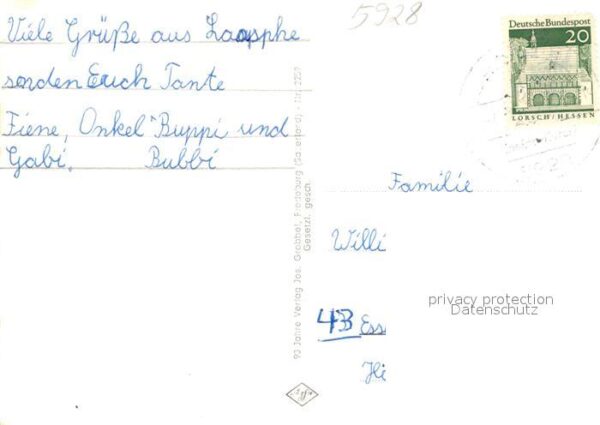 Viele Grüße aus Laasphe
senden Euch Tante
Fiene, Onkel Buppi und
Gabi. Bubbi
5928
Deutsche Bundespost
20
LORSCH/HESSEN
Familie
Willi
43 Ess
Hi
privacy protection
Datenschutz
93 Jahre Verlag Jos. Grobbel, Fredeburg (Sauerland) · Nr. 2257
Gesetzl. gesch.